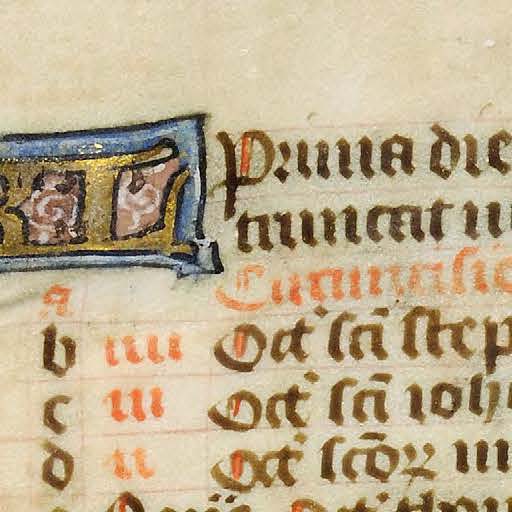 KL Prima die
truncat u
A Circumcisio
b iiii Oct' sci step
c iii Oct' sci ioh
d ii Oct' scor in